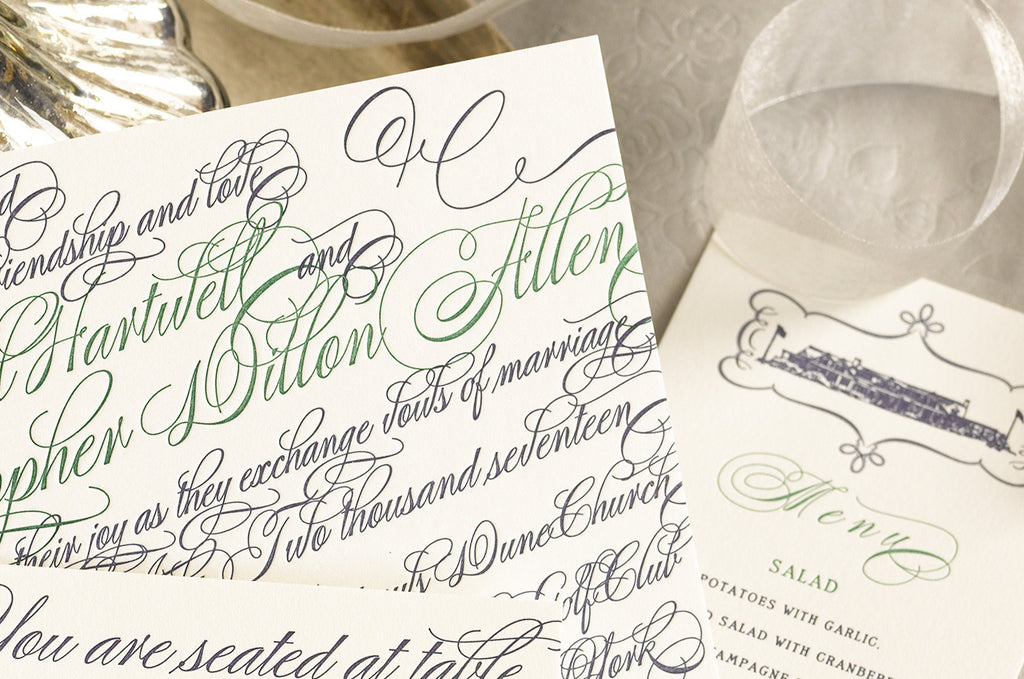 friendship and love
Hartwell and
Dillon Allen
their joy as they exchange vows of marriage
Two thousand seventeen
Dune Church
Golf Club
York
You are seated at table
Menu
SALAD
POTATOES WITH GARLIC,
SALAD WITH CRANBERR
AMPAGNE